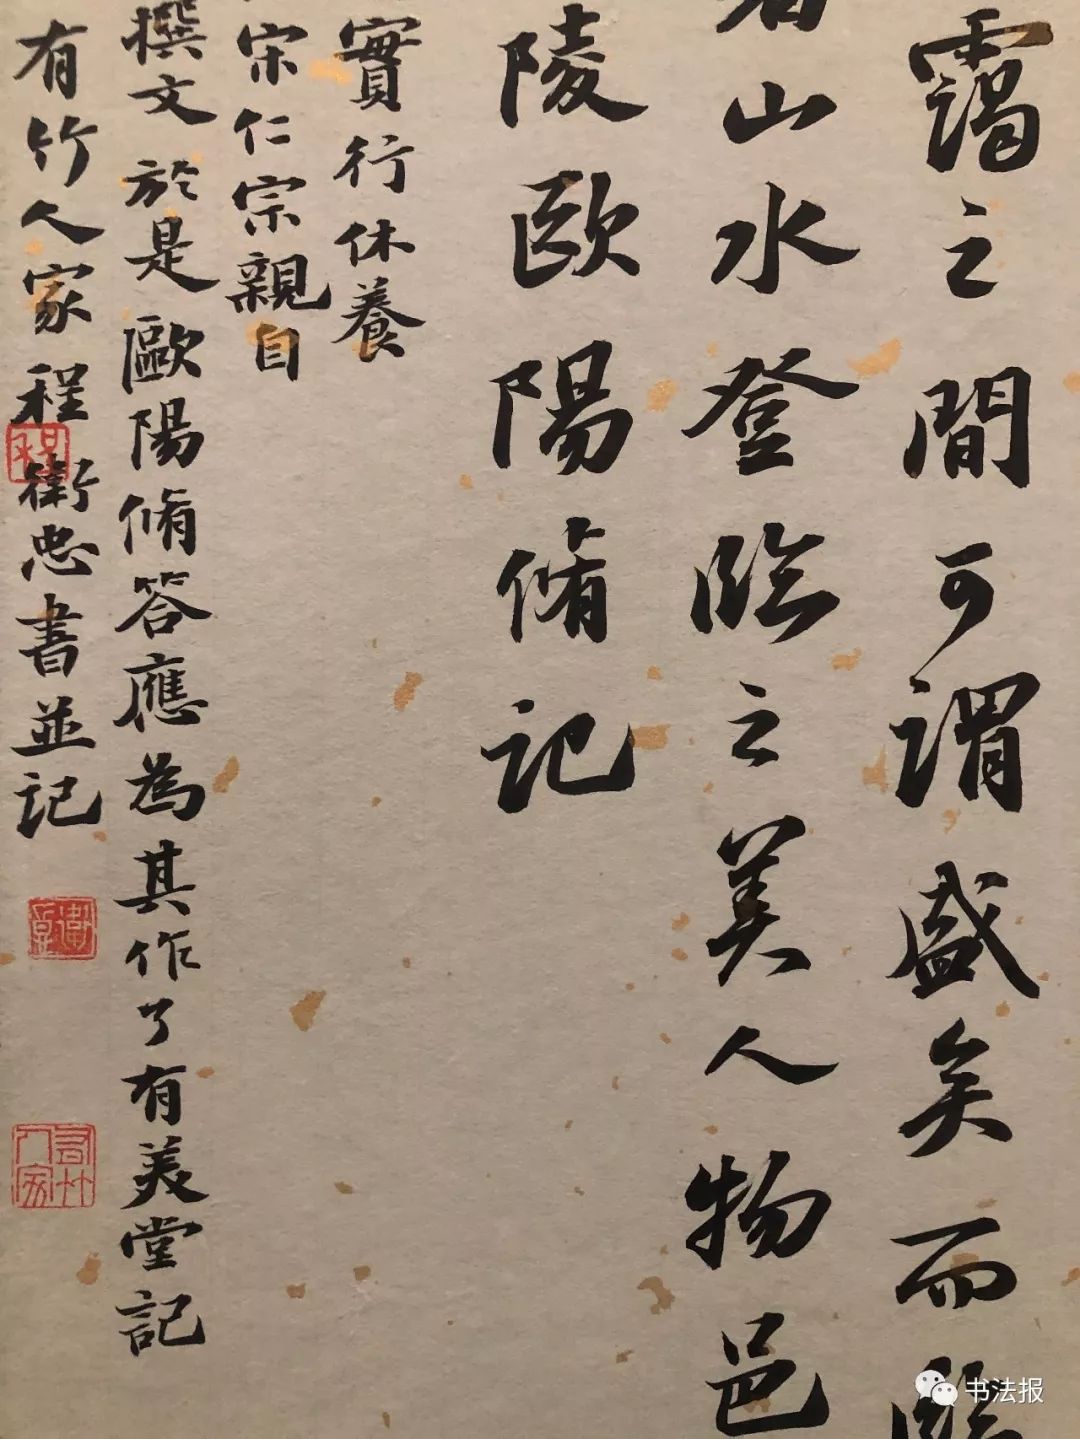 靄之間可謂盛矣而臨
山水登臨之美人物邑
陵歐陽脩記
實行休養
宋仁宗親自
撰文於是歐陽脩答應為其作了有美堂記
有竹人家程衛忠書並記
书法报